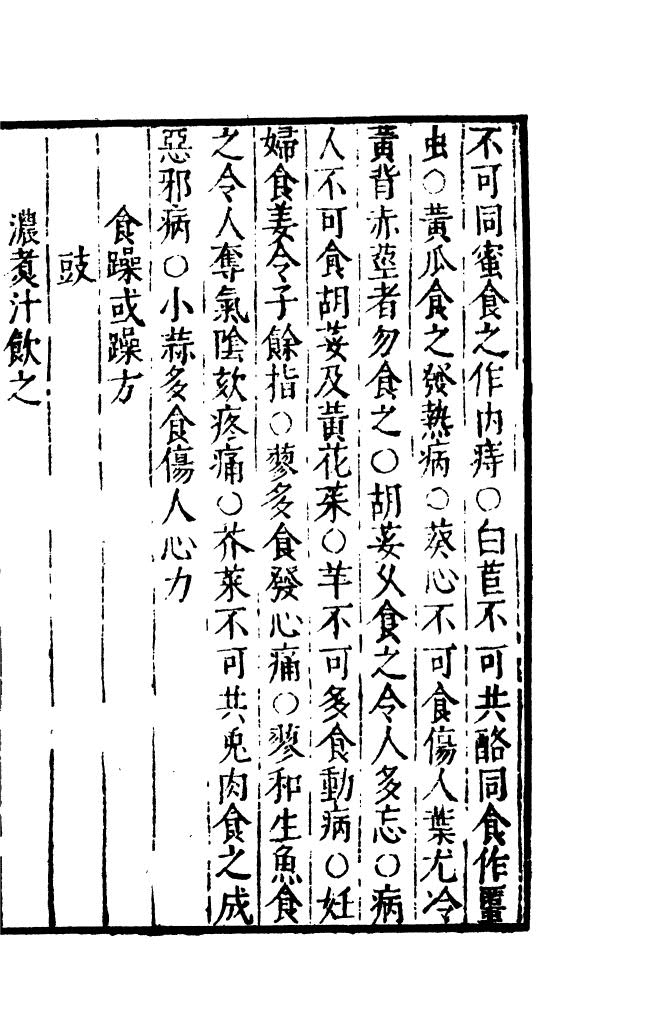 不可同蜜食之作内痔○白苣不可共酪同食作䘌
虫○黃瓜食之發熱病○葵心不可食傷人葉尤冷
黃背赤莖者勿食之○胡荽乆食之令人多忘○病
人不可食胡荽及黃花菜○羊不可多食動病○妊
婦食姜令子餘指○蓼多食發心痛○蓼和生魚食
之令人奪氣陰欬疼痛○芥菜不可共兎肉食之成
惡邪病○小蒜多食傷人心力
食躁或躁方
豉
濃煑汁飲之